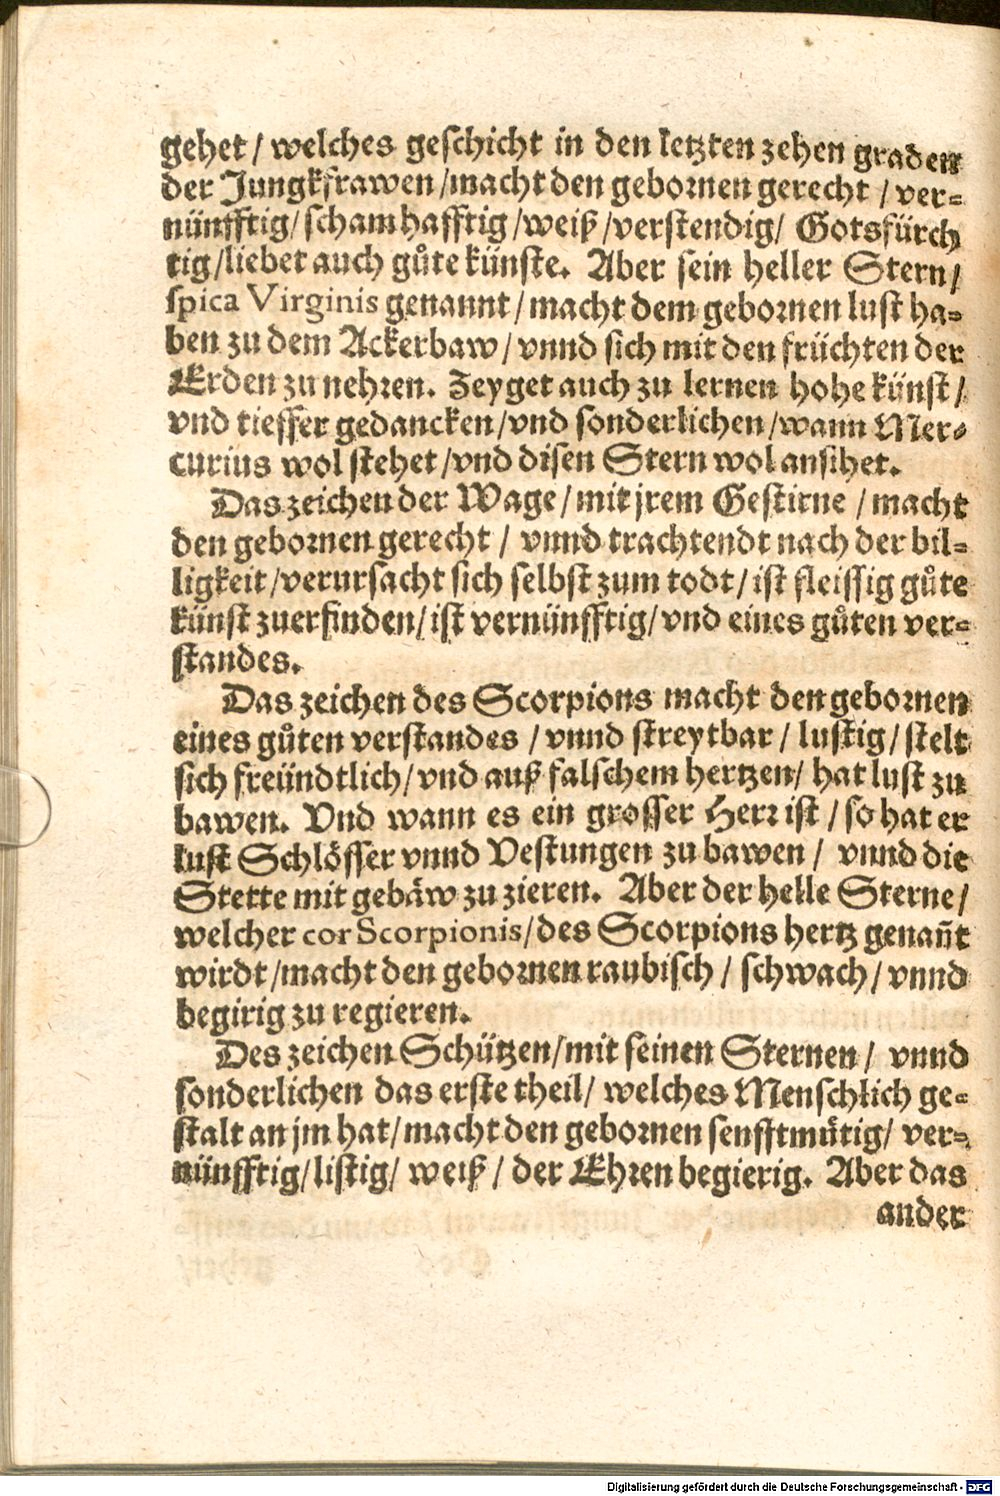 gehet / welches geschicht in den letzten zehen graden
der Jungkfrawen /macht den gebornen gerecht / ver-
nünfftig/ schamhafftig /weiß /verstendig/ Gotsfürch
tig /liebet auch gůte künste. Aber sein heller Stern /
spica Virginis genannt / macht dem gebornen lust ha-
ben zu dem Ackerbaw / vnnd sich mit den früchten der
Erden zu nehren. Zeyget auch zu lernen hohe künst /
vnd tieffer gedancken /vnd sonderlichen /wann Mer-
curius wol stehet /vnd disen Stern wol ansihet.
Das zeichen der Wage / mit jrem Gestirne / macht
den gebornen gerecht / vnnd trachtendt nach der bil-
ligkeit /verursacht sich selbst zum todt / ist fleissig gůte
künst zuerfinden / ist vernünfftig/ vnd eines gůten ver-
standes.
Das zeichen des Scorpions macht den gebornen
eines gůten verstandes / vnnd streytbar / lustig / stelt
sich freündtlich / vnd auß falschem hertzen/ hat lust zu
bawen. Vnd wann es ein grosser Herr ist / so hat er
lust Schlösser vnnd Vestungen zu bawen / vnnd die
Stette mit gebäw zu zieren. Aber der helle Sterne /
welcher cor Scorpionis / des Scorpions hertz genañt
wirdt / macht den gebornen raubisch / schwach / vnnd
begirig zu regieren.
Des zeichen Schützen / mit seinen Sternen / vnnd
sonderlichen das erste theil / welches Menschlich ge-
stalt an jm hat / macht den gebornen senfftmütig/ ver-
nünfftig / listig/ weiß / der Ehren begierig. Aber das
ander
Digitalisierung gefördert durch die Deutsche Forschungsgemeinschaft - DFG